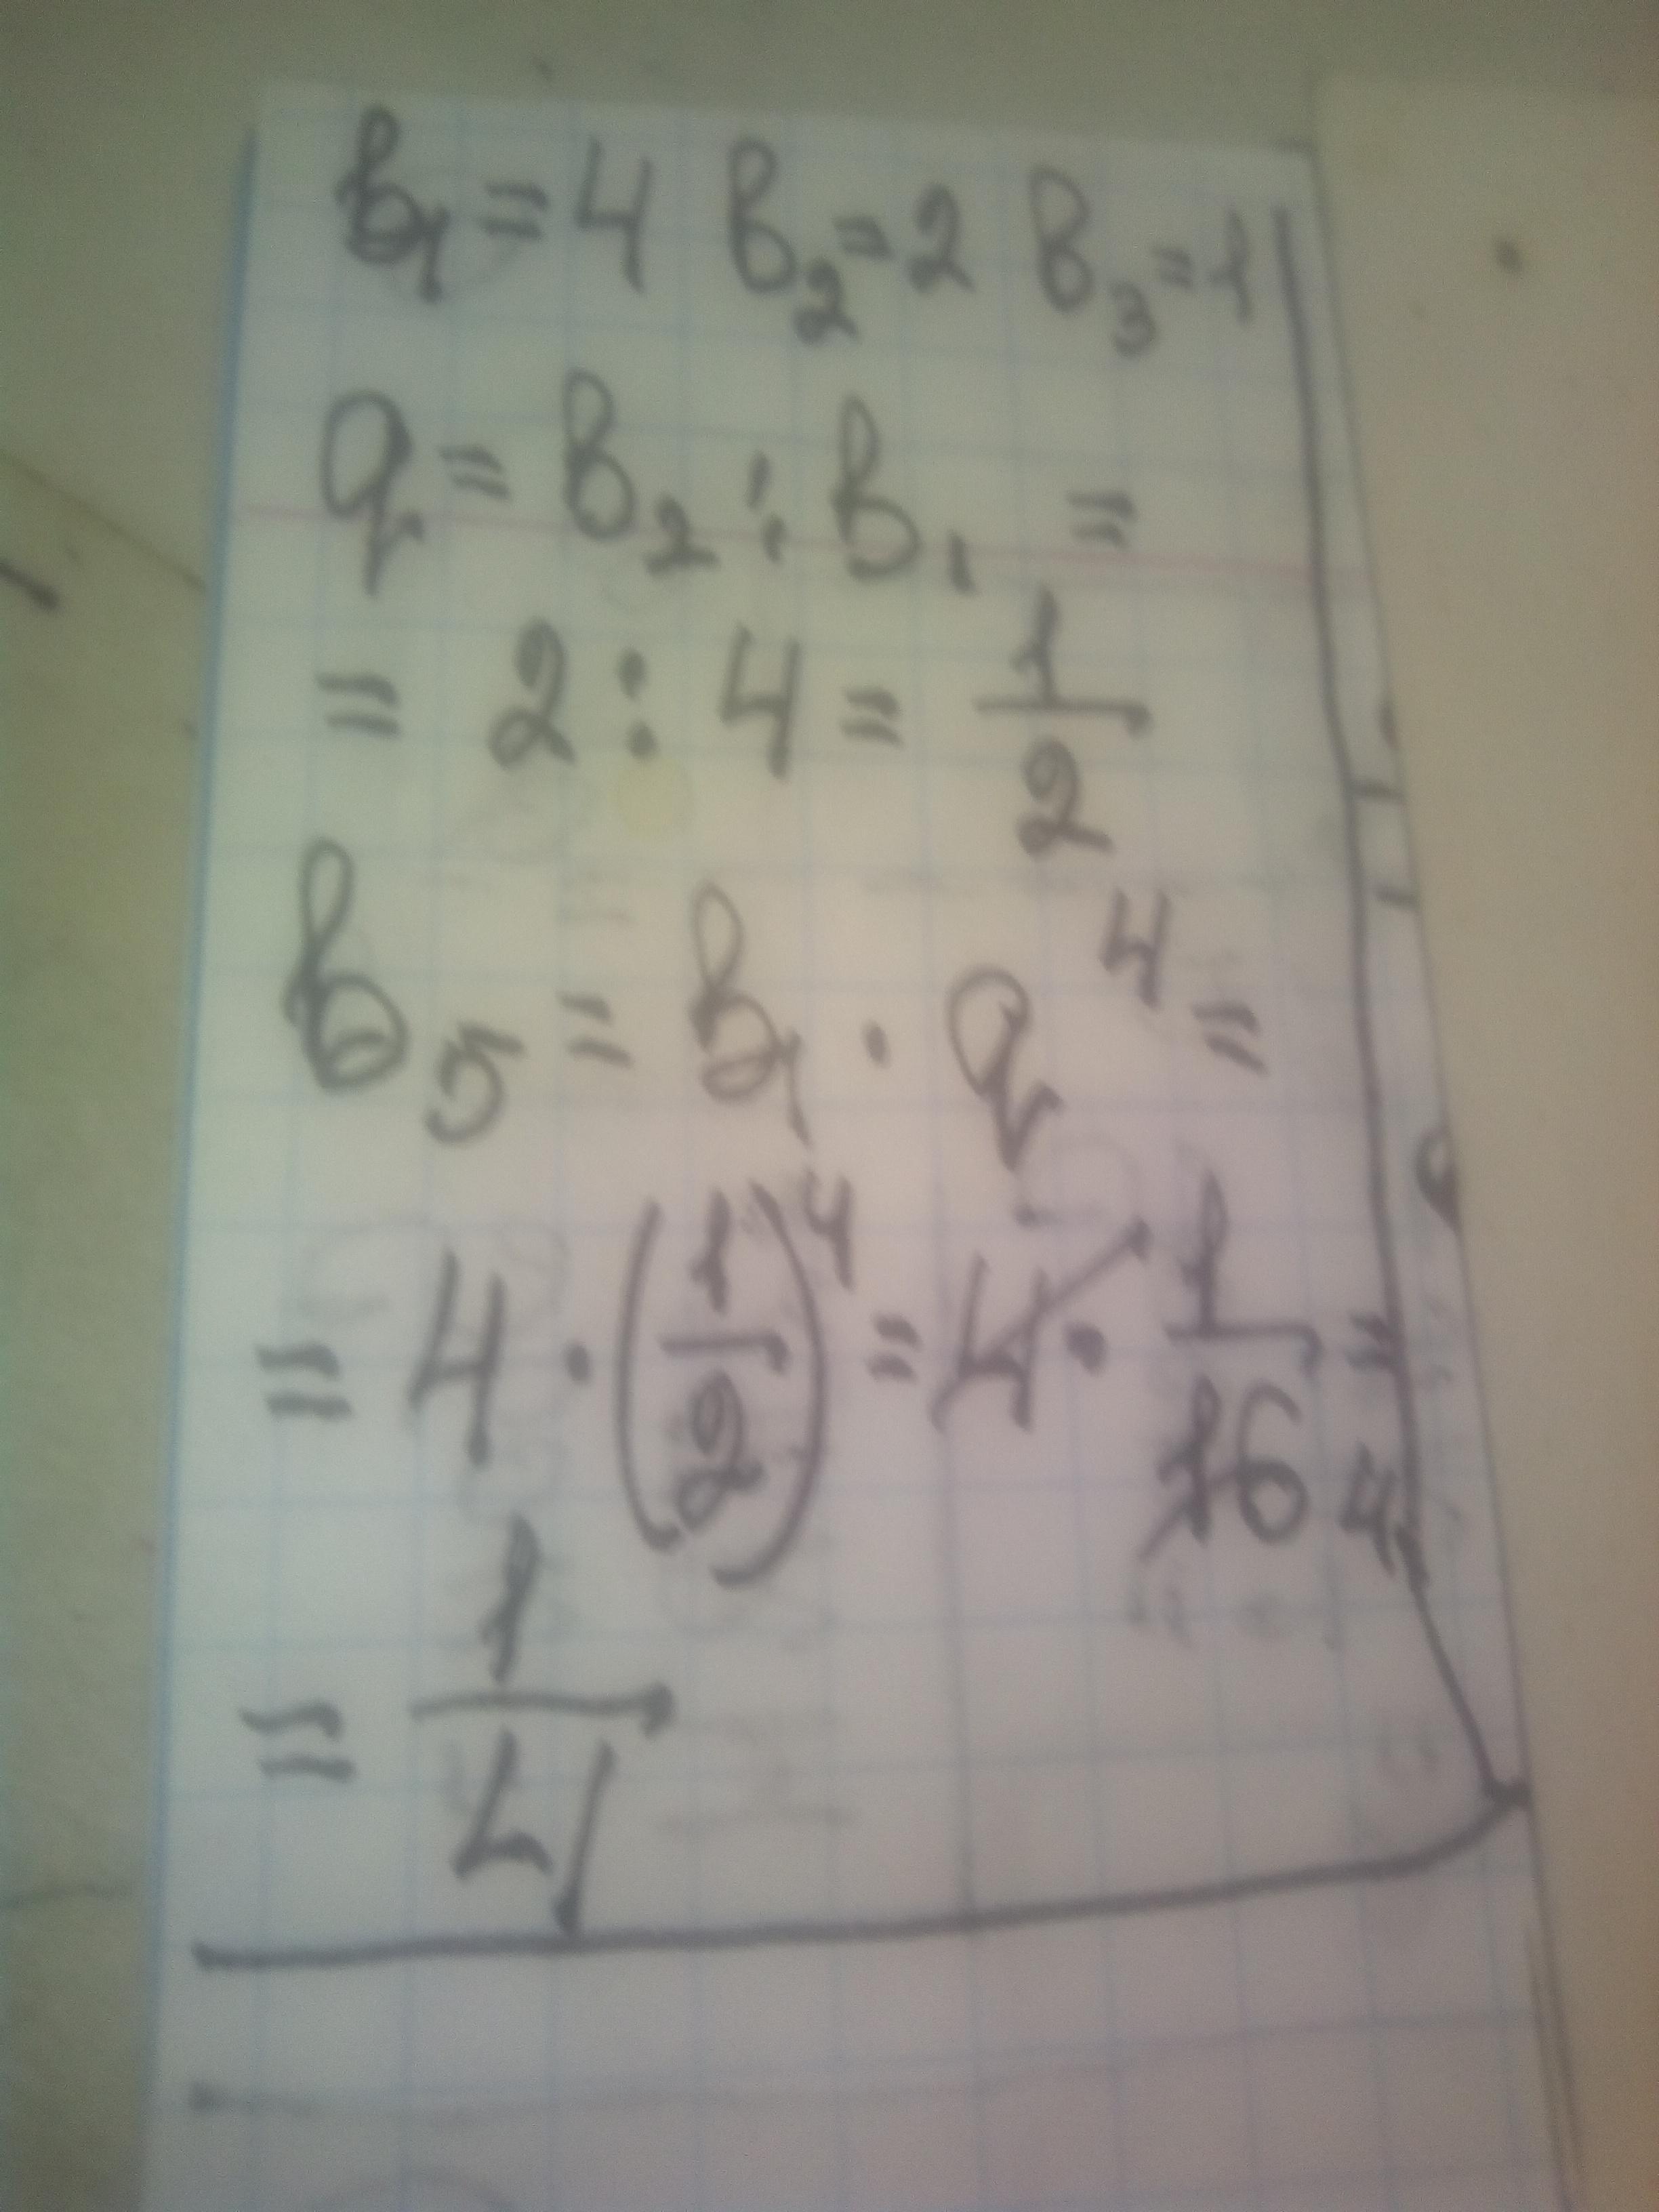 b₁ = 4 b₂ = 2 b₃ = 1
q = b₂ : b₁ =
= 2 : 4 = 1/2
b₅ = b₁ · q⁴ =
= 4 · (1/2)⁴ = 4 · 1/16 4 =
= 1/4